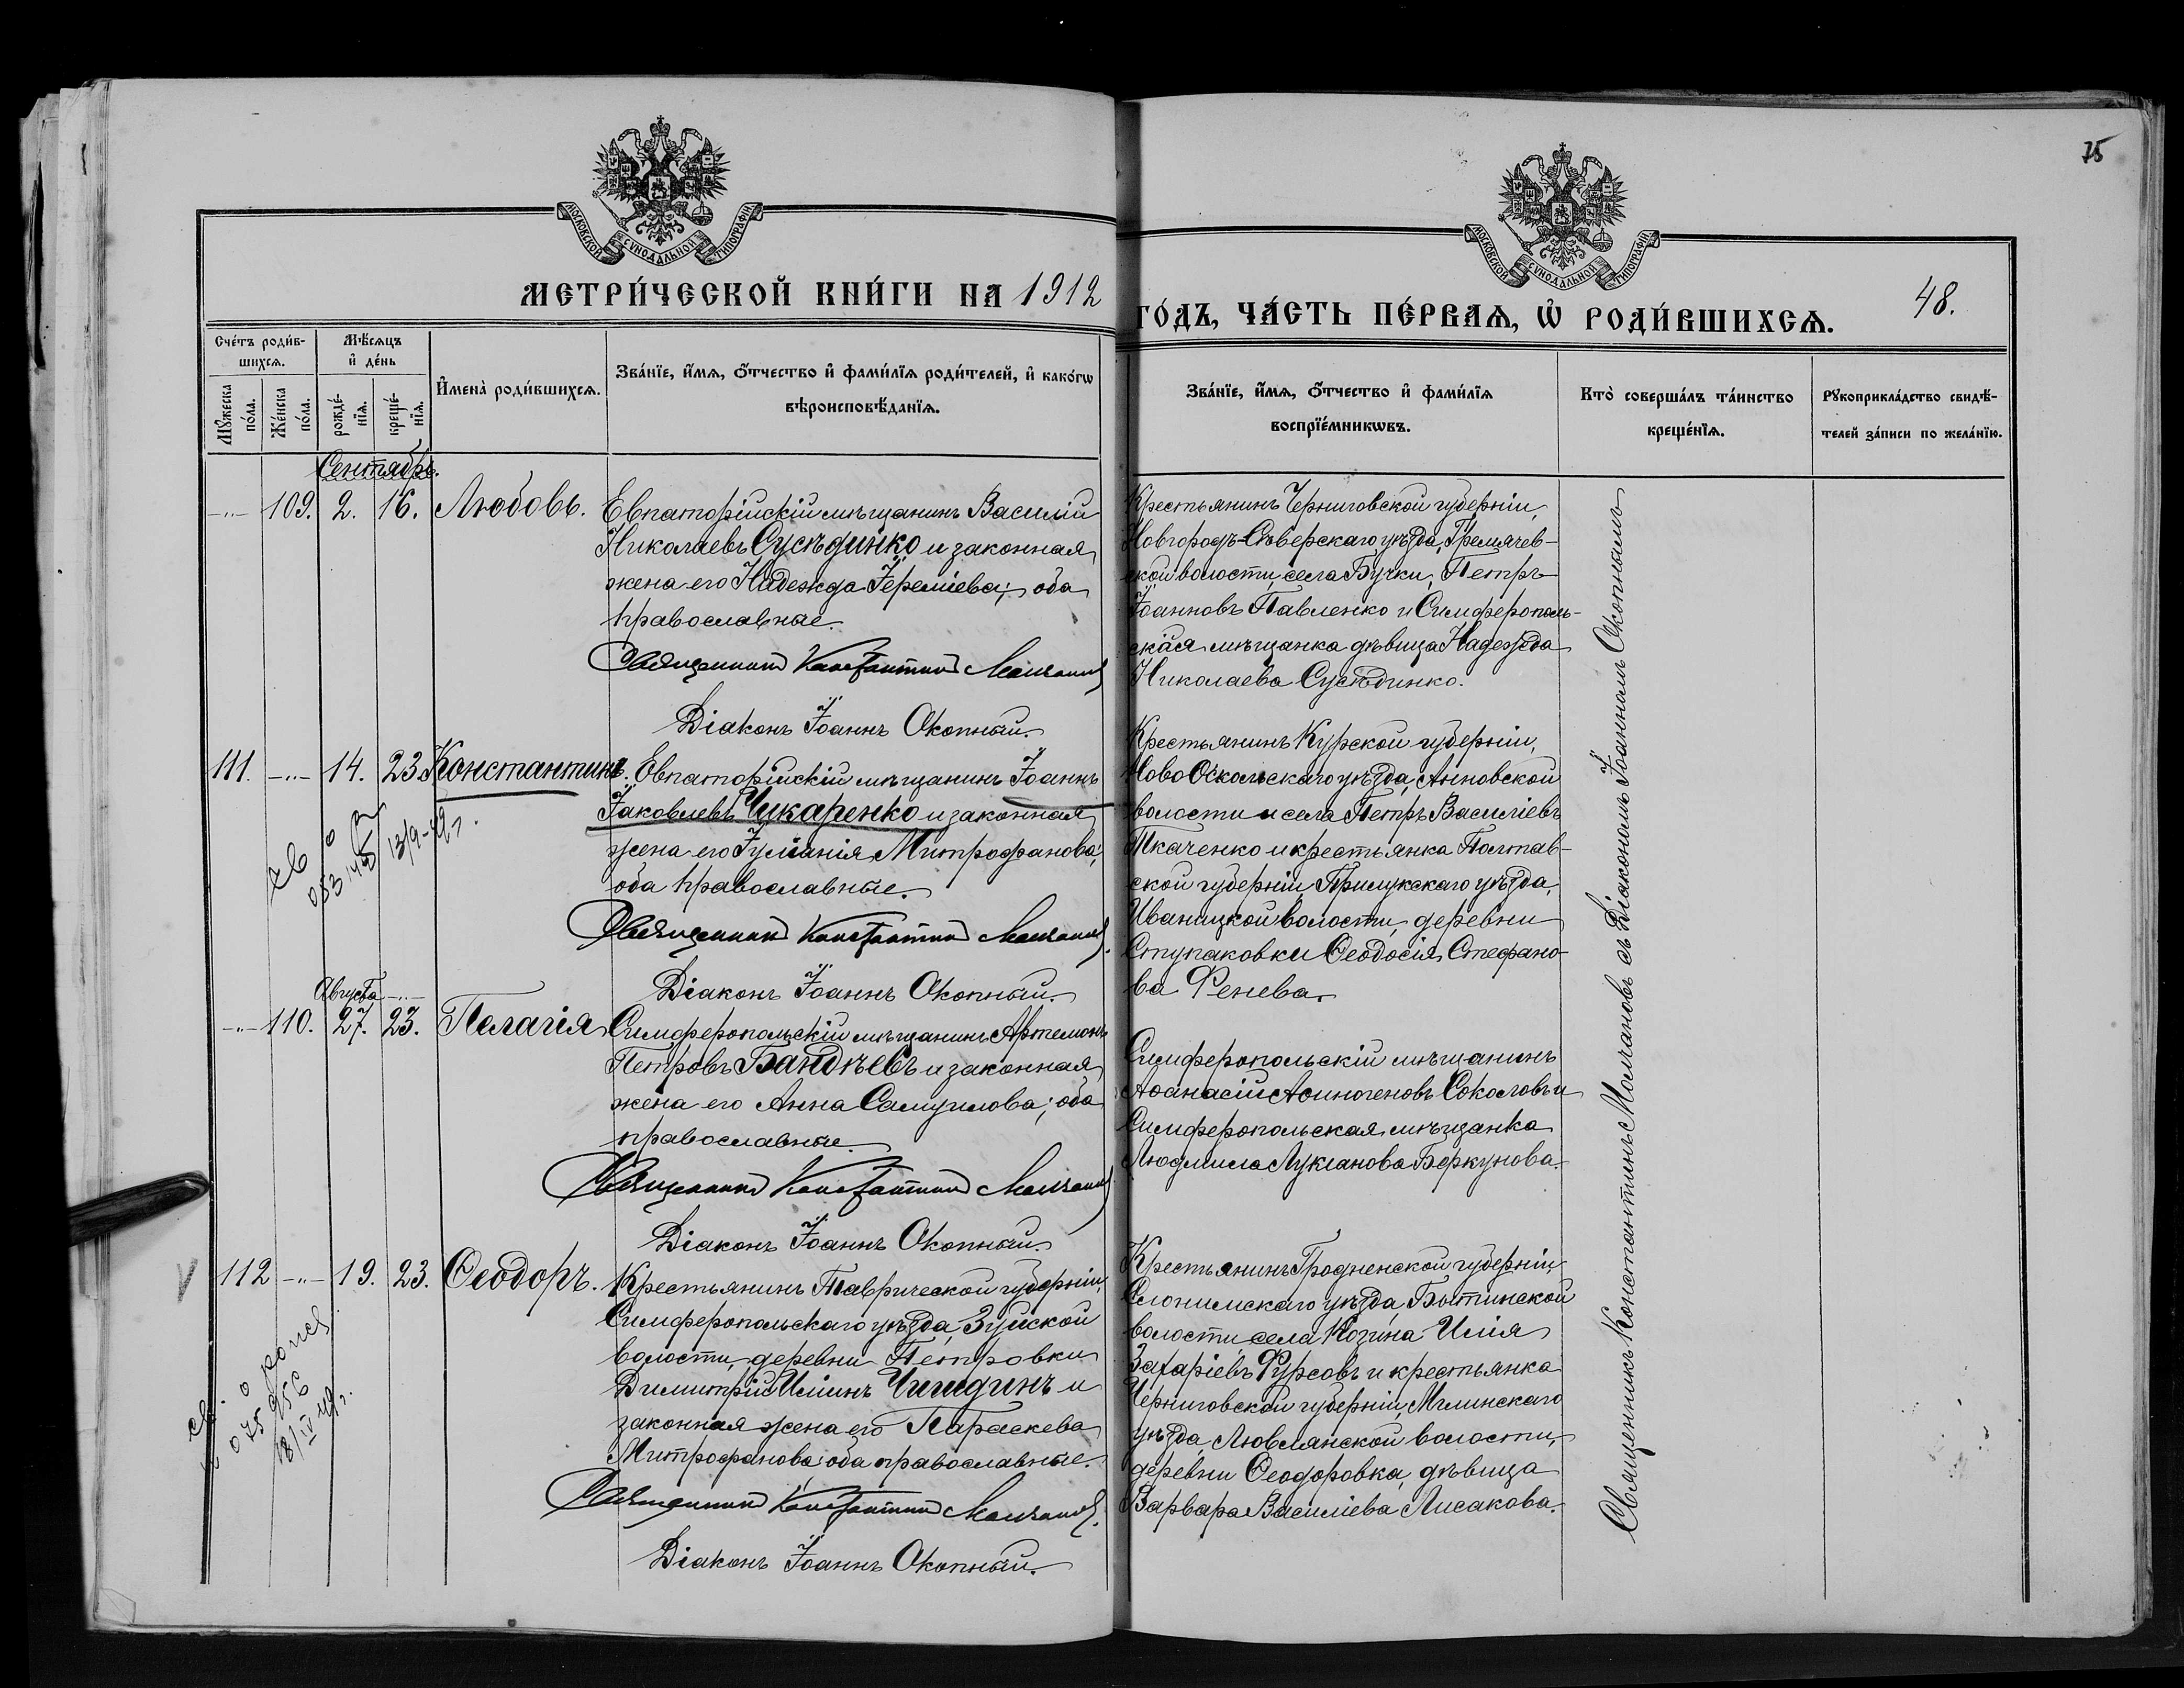 75
МОСКОВСКОЙ СѴНОДАЛЬНОЙ ТИПОГРАФІИ
МОСКОВСКОЙ СѴНОДАЛЬНОЙ ТИПОГРАФІИ
МЕТРИ́ЧЕСКОЙ КНИ́ГИ НА 1912
ГО́ДЪ, ЧА́СТЬ ПЕ́РВАѦ, Ѡ҆ РОДИ́ВШИХСѦ.
48.
Сче́тъ роди́в-
шихсѧ.
Мꙋ́жеска
по́ла.
Же́нска
по́ла.
Мѣ́сѧцъ
и҆ де́нь
рожде́-
нїѧ.
креще́-
нїѧ.
И҆мена̀ роди́вшихсѧ.
Зва́нїе, и҆́мѧ, ѻ҆́тчество и҆ фами́лїѧ роди́телей, и҆ како́гѡ
вѣроисповѣ́данїѧ.
Зва́нїе, и҆́мѧ, ѻ҆́тчество и҆ фами́лїѧ
воспрїе́мникѡвъ.
Кто̀ соверша́лъ та́инство
креще́нїѧ.
Рꙋкоприкла́дство свидѣ́-
телей за́писи по жела́нїю.
Сентябрь.
-„- 109. 2. 16. Любовь.
Евпаторійскій мѣщанинъ Василій
Николаевъ Сусѣдинко и законная
жена его Надежда Іереміева; оба
православные.
Священникъ Константинъ Молчановъ
Діаконъ Іоаннъ Окопный.
Крестьянинъ Черниговской губерніи,
Новгородъ-Сѣверскаго уѣзда, Гремячев-
ской волости, села Бучки, Петръ
Іоанновъ Павленко и Симферополь-
ская мѣщанка дѣвица Надежда
Николаева Сусѣдинко.
111. -„- 14. 23. Константинъ.
Евпаторійскій мѣщанинъ Іоаннъ
Іаковлевъ Чикаренко и законная
жена его Іуліанія Митрофанова;
оба православные.
Священникъ Константинъ Молчановъ.
Діаконъ Іоаннъ Окопный.
13/9-49 г.
Крестьянинъ Курской губерніи,
Ново Оскольскаго уѣзда, Анновской
волости и села Петръ Василіевъ
Ткаченко и крестьянка Полтав-
ской губерніи Прилукскаго уѣзда,
Иваницкой волости, деревни
Ступаковки Ѳеодосія Стефано-
ва Ренева.
Августа -„-
-„- 110. 27. 23. Пелагія
Симферопольскій мѣщанинъ Артемонъ
Петровъ Бандѣевъ и законная
жена его Анна Самуилова; оба
православные.
Священникъ Константинъ Молчановъ
Діаконъ Іоаннъ Окопный.
Симферопольскій мѣщанинъ
Аѳанасій Аѳиногеновъ Соколовъ и
Симферопольская мѣщанка
Людмила Лукіанова Беркунова.
V 112 -„- 19. 23. Ѳеодоръ.
Крестьянинъ Таврической губерніи,
Симферопольскаго уѣзда, Зуйской
волости, деревни Петровки
Димитрій Иліинъ Чишдинъ и
законная жена его Параскева
Митрофанова; оба православные.
Священникъ Константинъ Молчановъ.
Діаконъ Іоаннъ Окопный.
18/IV 49 г.
Крестьянинъ Гродненской губерніи,
Слонимскаго уѣзда, Бытинской
волости, села Козина Илія
Захаріевъ Фурсовъ и крестьянка
Черниговской губерніи, Мглинскаго
уѣзда, Лювлянской волости,
деревни Ѳеодоровка, дѣвица
Варвара Василіева Лисакова.
Священникъ Константинъ Молчановъ съ Діакономъ Іоанномъ Окопнымъ